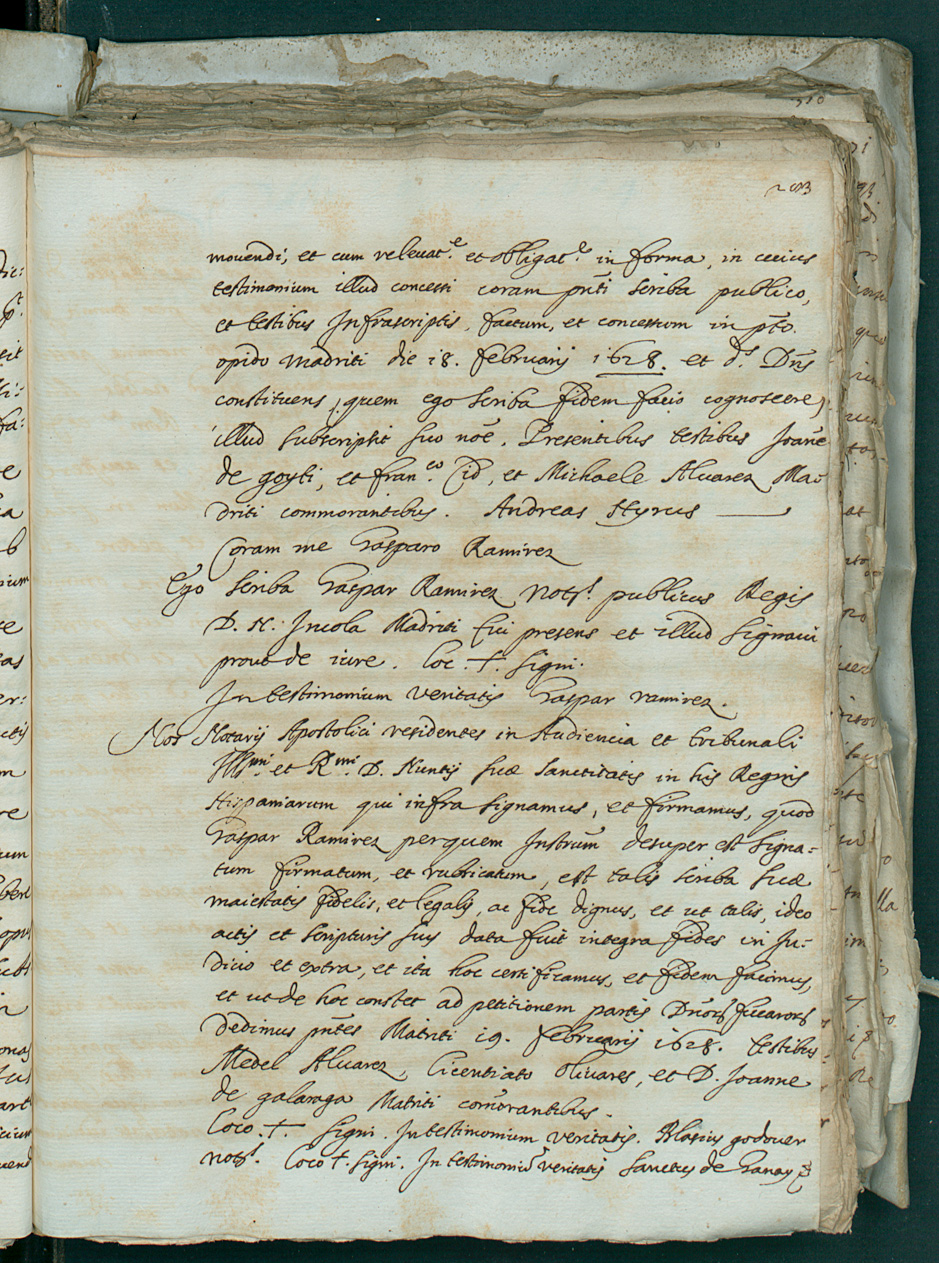 293
mouendi, et cum releuat.e et obligat.e in forma, in cuius
testimonium illud concessi coram pnti scriba publico,
et testibus Infrascriptis, factum, et concessum in pto.
opido Madriti die 18. februarij 1628. et d.s Dns
constituens, quem ego scriba fidem facio cognoscere,
illud subscripsit suo noe. Presentibus testibus Joane
de goyti, et fran.co Cid, et Michaele Aluarez Ma-
driti commorantibus. Andreas Hyrus
Coram me Gasparo Ramirez
Ego scriba Gaspar Ramirez Nots. publicus Regis
D. N. Incola Madriti fui presens et illud signaui
prout de iure. loc. +. signi.
In testimonium veritatis Gaspar ramirez.
Nos Notarij Apostolici residentes in Audiencia et tribunali
Illmi. et Rmi. D. Nuntij suæ sanctitatis in his Regnis
Hispaniarum qui infra signamus, et firmamus, quod
Gaspar Ramirez per quem Instrum desuper est signa-
tum firmatum, et rubricatum, est talis scriba suæ
maiestatis fidelis, et legalis, ac fide dignus, et ut talis, ideo
actis et scripturis suis data fuit integra fides in Ju-
dicio et extra, et ita hoc certificamus, et fidem facimus,
et ut de hoc constet ad petitionem partis Dnors fucarors
dedimus pntes Matriti 19. februarij 1628. testibus
Medel Aluarez, licentiato oliuares, et D. Joanne
de galaraga Matriti comorantibus.
Loco. +. signi. In testimonium veritatis. Blasius godouer
nots. Loco +. signi. In testimoniu veritatis sanctus de Ganay